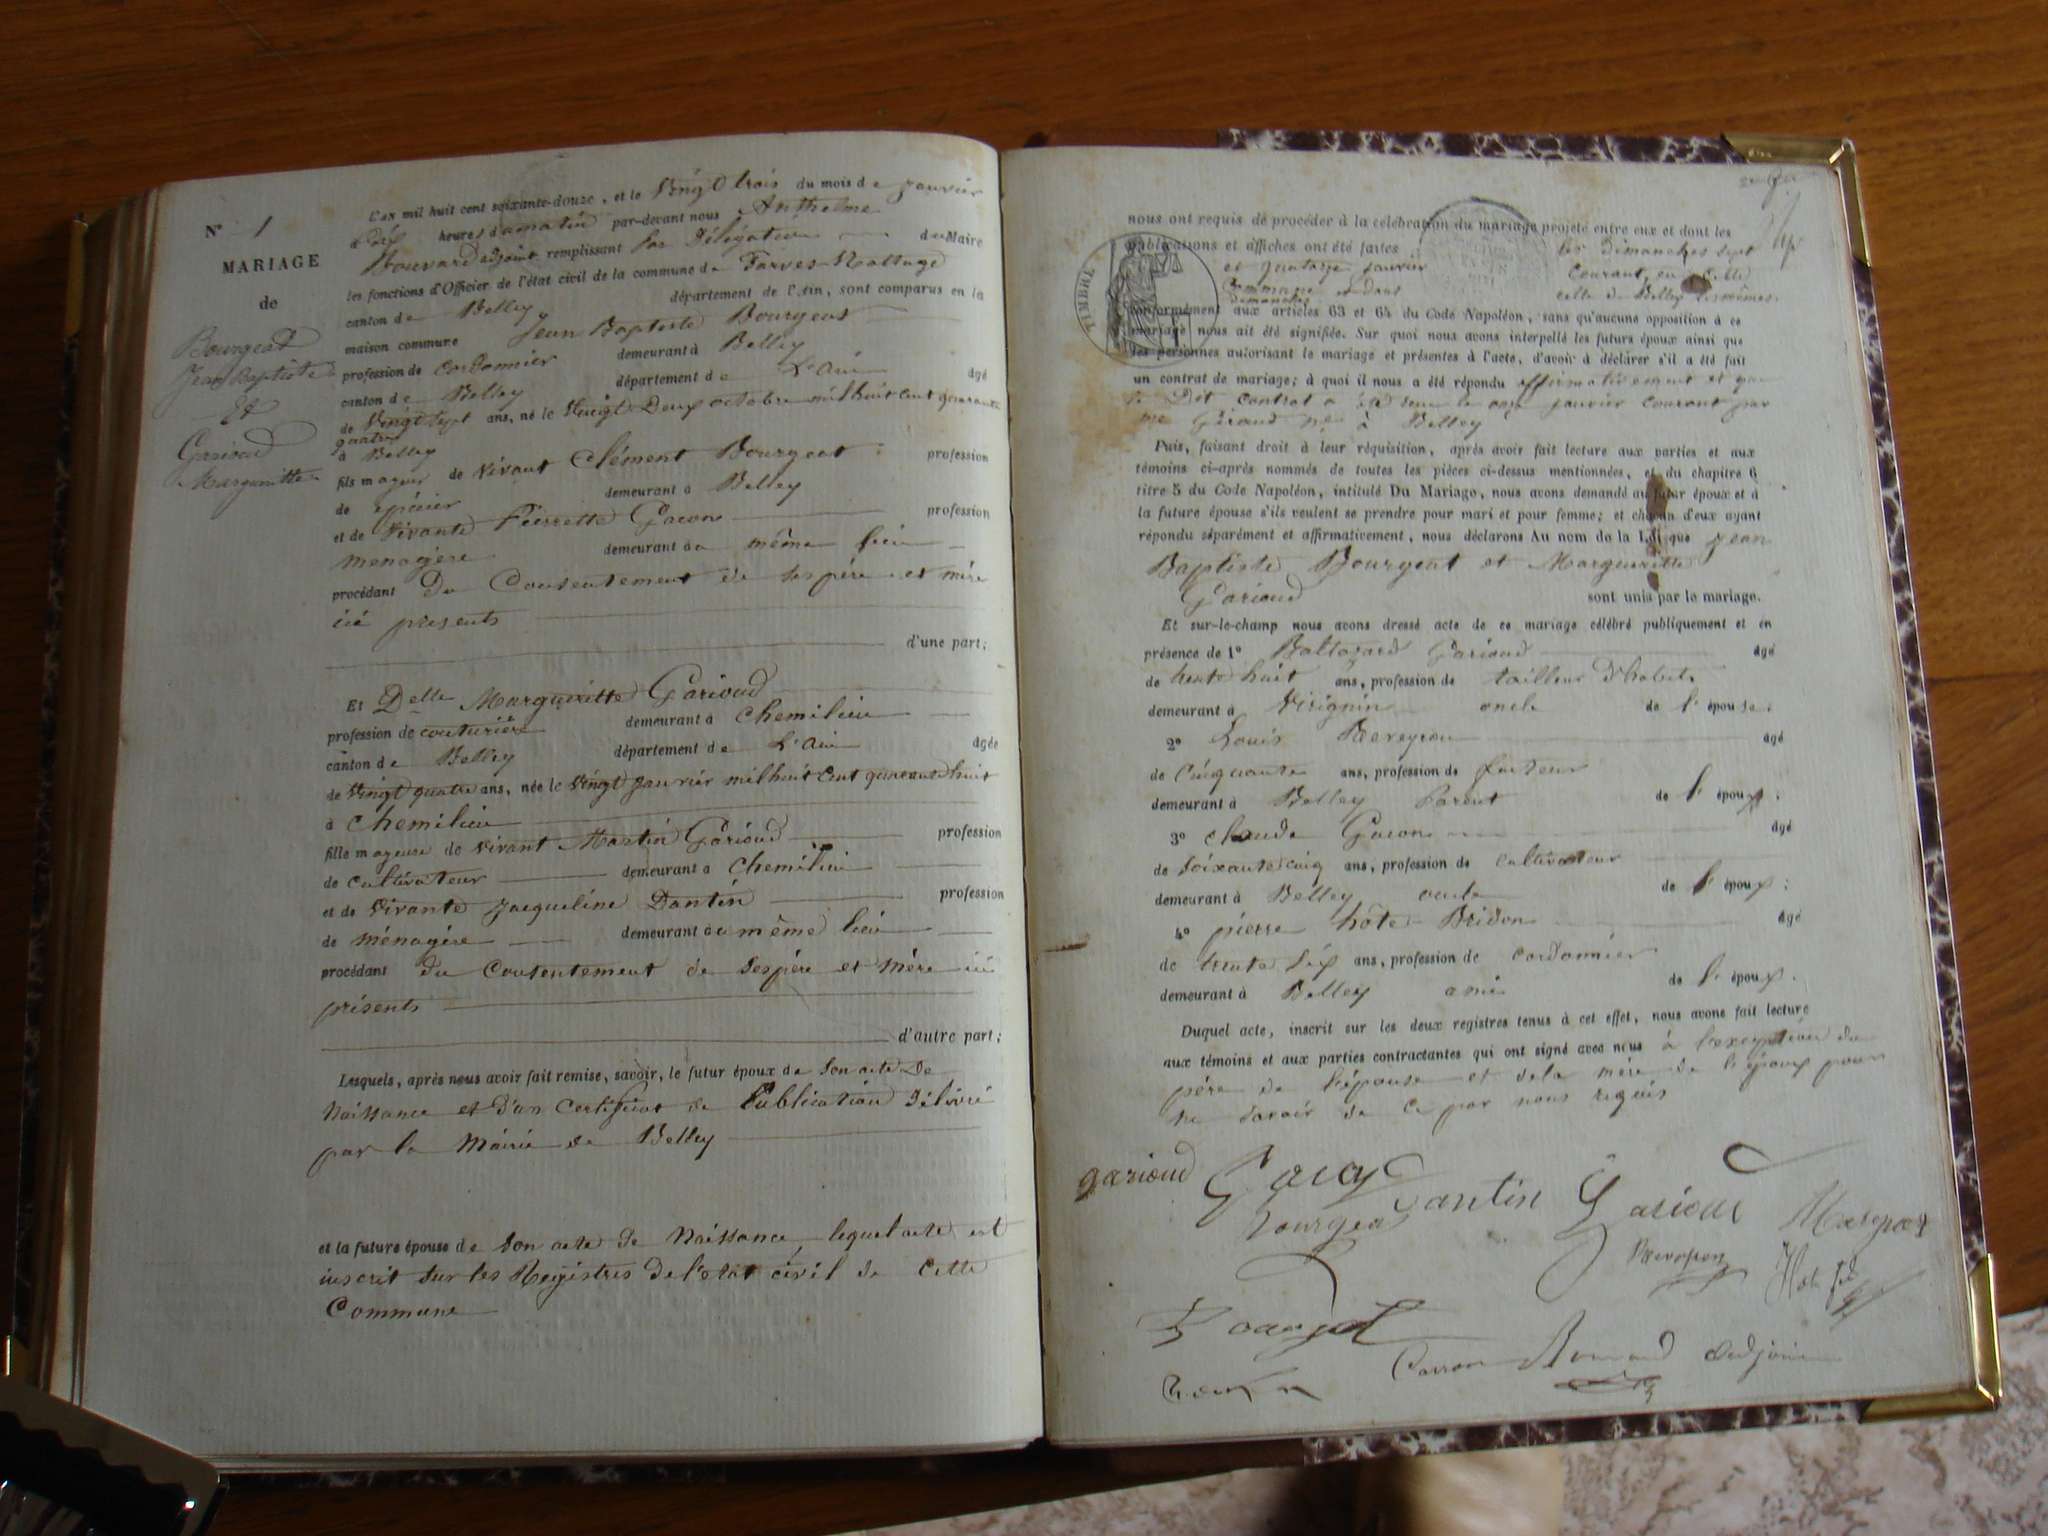 N° 1
MARIAGE
de
Bourgeat
Jean Baptiste
Et
Garioud
Margueritte
L'an mil huit cent soixante-douze, et le Vingt trois du mois de janvier
à dix heures du matin par-devant nous Anthelme
Bouvard adjoint remplissant par Délégation du Maire
les fonctions d'Officier de l'état civil de la commune de Parves-Nattage
canton de Belley département de l'Ain, sont comparus en la
maison commune Jean Baptiste Bourgeat
profession de cordonnier demeurant à Belley
canton de Belley département de L'Ain âgé
de Vingt sept ans, né le Vingt Deux octobre mil huit cent quarante
quatre
à Belley
fils majeur de vivant Clément Bourgeat profession
de épicier demeurant à Belley
et de vivante Pierrette Gacon profession
menagère demeurant au même lieu
procédant Du Consentement de ses père et mère
ici presents
d'une part;
Et Delle Margueritte Garioud
profession de couturière demeurant à Chemilieu
canton de Belley département de L'Ain âgée
de Vingt quatre ans, née le Vingt janvier mil huit cent quarante huit
à Chemilieu
fille majeure de vivant Martin Garioud profession
de cultivateur demeurant à Chemilieu
et de vivante Jacqueline Dantin profession
de ménagère demeurant au même lieu
procédant du Consentement de ses père et mère ici
présents
d'autre part;
Lesquels, après nous avoir fait remise, savoir, le futur époux de son acte De
Naissance et d'un Certificat de Publication Délivré
par la Mairie de Belley
et la future épouse de son acte de Naissance, lequel acte est
inscrit sur les Registres de l'etat civil de cette
Commune
nous ont requis de procéder à la célébration du mariage projeté entre eux et dont les
publications et affiches ont été faites les dimanches sept
et quatorze janvier courant, en cette
Commune et dans celle de Belley les mêmes
dimanches
TIMBRE
conformément aux articles 63 et 64 du Code Napoléon, sans qu'aucune opposition à ce
mariage nous ait été signifiée. Sur quoi nous avons interpellé les futurs époux ainsi que
les personnes autorisant le mariage et présentes à l'acte, d'avoir à déclarer s'il a été fait
un contrat de mariage; à quoi il nous a été répondu affirmativement et que
le Dit contrat a été le onze janvier courant par
me Giraud à Belley
Puis, faisant droit à leur réquisition, après avoir fait lecture aux parties et aux
témoins ci-après nommés de toutes les pièces ci-dessus mentionnées, et du chapitre 6
titre 5 du Code Napoléon, intitulé Du Mariage, nous avons demandé au futur époux et à
la future épouse s'ils veulent se prendre pour mari et pour femme; et chacun d'eux ayant
répondu séparément et affirmativement, nous déclarons Au nom de la Loi que Jean
Baptiste Bourgeat et Marguerite
Garioud sont unis par le mariage.
Et sur-le-champ nous avons dressé acte de ce mariage célébré publiquement et en
présence de 1° Baltazard Garioud âgé
de trente huit ans, profession de tailleur D'habits
demeurant à Virignin oncle de l'épouse;
2° Louis Reveyron âgé
de Cinquante ans, profession de facteur
demeurant à Belley Parent de l'époux;
3° Claude Gacon âgé
de soixante cinq ans, profession de cultivateur
demeurant à Belley oncle de l'époux;
4° pierre hôte-Bridon âgé
de trente six ans, profession de cordonnier
demeurant à Belley ami de l'époux.
Duquel acte, inscrit sur les deux registres tenus à cet effet, nous avons fait lecture
aux témoins et aux parties contractantes qui ont signé avec nous à l'exception du
père de l'épouse et de la mère de l'époux pour
ne savoir de ce par nous requis
garioud
Dantin
Garioud
Bourgeat
adjoint